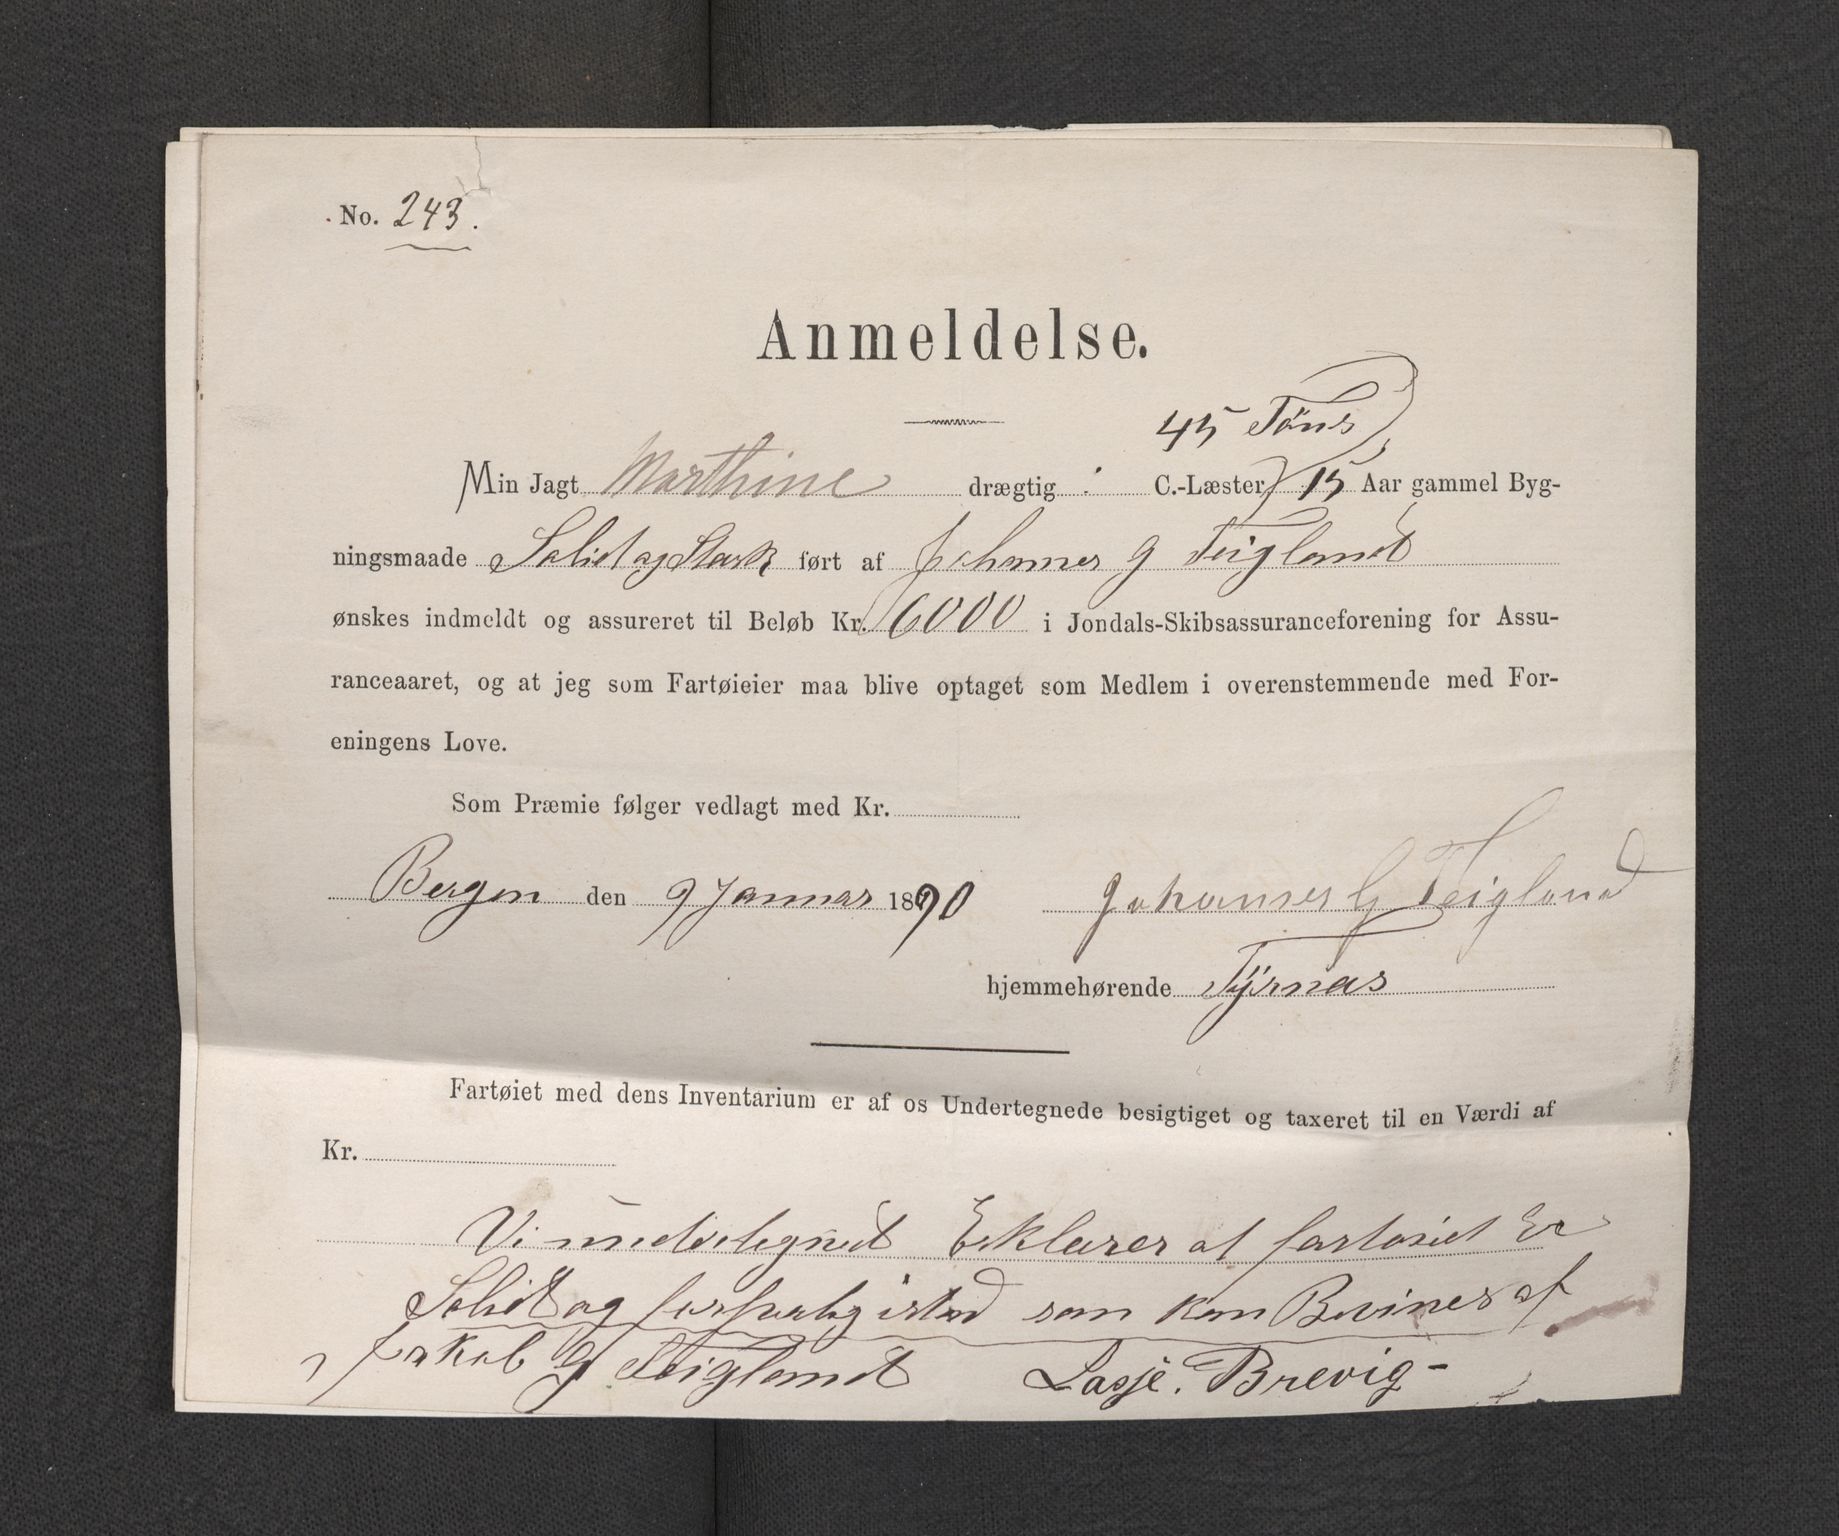 No. 243.
Anmeldelse.
45 Töns
Min Jagt Marthine drægtig C.-Læster 15 Aar gammel Byg-
ningsmaade Solid og Stærk ført af Johannes G Teigland
ønskes indmeldt og assureret til Beløb Kr. 6000 i Jondals-Skibsassuranceforening for Assu-
ranceaaret, og at jeg som Fartøieier maa blive optaget som Medlem i overenstemmende med For-
eningens Love.
Som Præmie følger vedlagt med Kr.
Bergen den 9 Januar 1890 Johannes G Teigland
hjemmehørende Tÿsnas
Fartøiet med dens Inventarium er af os Undertegnede besigtiget og taxeret til en Værdi af
Kr.
Vi undertegned Erklerer at fartøiet Er
Solidt og istand som kan Bevines af
Jakob G Teigland Lasje. Brevig-